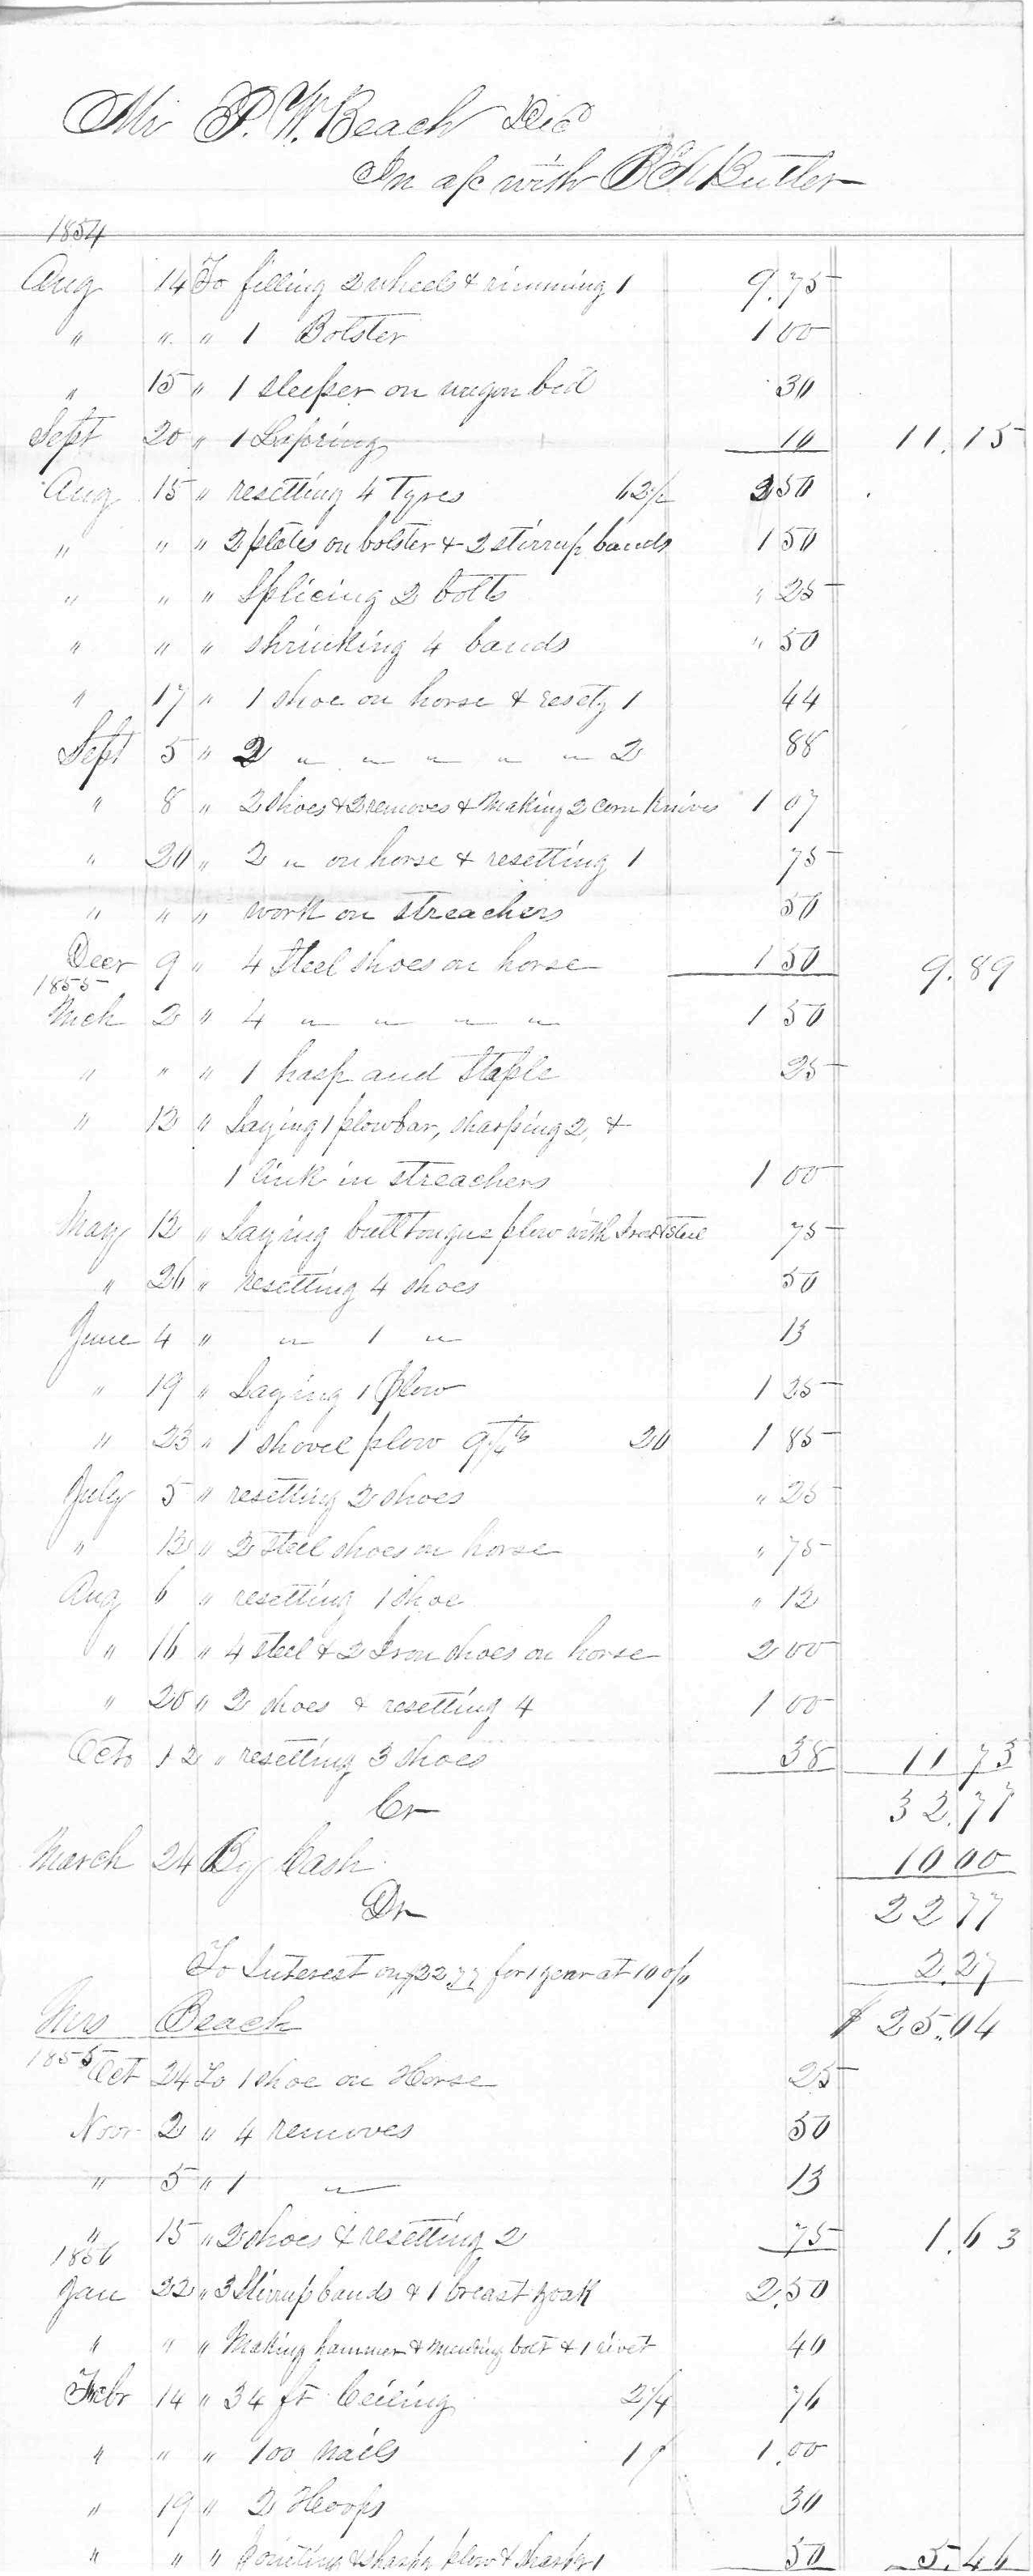 Mr P. W. Beach Decd
In a/c with B F Butler
1854
Aug 14 To filling 2 wheels & rimming 1 9.75
" " " 1 Bolster 1 00
" 15 " 1 sleeper on wagon bed 30
Sept 20 " 1 10 11.15
Aug 15 " resetting 4 Tyres 62½ 2 50
" " " 2 plates on bolster & 2 stirrup bands 1 50
" " " Splicing 2 bolts " 25
" " " shrinking 4 bands " 50
" 17 " 1 shoe on horse & resetg 1 44
Sept 5 " 2 " " " " " 2 88
" 8 " 2 shoes & 2 removes & Making 2 corn Knives 1 07
" 20 " 2 " on horse & resetting 1 75
" " " work on streachers 50
Decr 9 " 4 Steel shoes on horse 1 50 9.89
1855
Mch 2 " 4 " " " " 1 50
" " " 1 hasp and Staple 25
" 12 " Laying 1 plow bar, sharping 2, &
1 link in streachers 1 00
May 12 " Laying bull tongue plow with Iron & Steel 75
" 26 " resetting 4 shoes 50
June 4 " " 1 " 13
" 19 " Laying 1 Plow 1 25
" 23 " 1 shovel plow 9¼ lb 20 1 85
July 5 " resetting 2 shoes " 25
" 12 " 2 Steel shoes on horse " 75
Aug 6 " resetting 1 shoe " 12
" 16 " 4 steel & 2 Iron shoes on horse 2 00
" 20 " 2 shoes & resetting 4 1 00
Octo 12 " resetting 3 shoes 38 11 73
Cr 32.77
March 24 By Cash 10 00
Dr 22 77
To Interest on $22 77 for 1 year at 10 o/o 2.27
Mrs Beach $ 25.04
1855
Oct 24 To 1 shoe on Horse 25
Novr 2 " 4 removes 50
" 5 " 1 " 13
" 15 " 2 shoes & resetting 2 75 1.63
1856
Jan 22 " 3 Stirrup bands & 1 breast yoak 2.50
" " " Making hammer & mending bolt & 1 rivet 40
Febr 14 " 34 ft Ceiling 2¼ 76
" " " 100 nails 1 1.00
" 19 " 2 Hoops 30
" " " Pointing & sharpg plow & sharpg 1 50 5.46